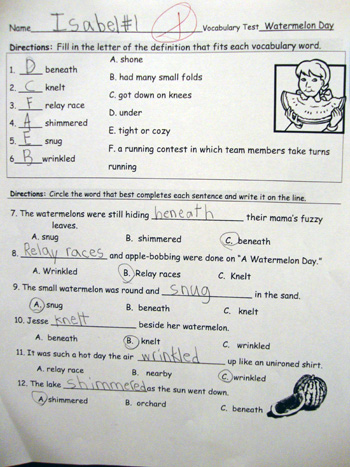 Name Isabel #1 Vocabulary Test Watermelon Day
Directions: Fill in the letter of the definition that fits each vocabulary word.
1. D beneath
2. C knelt
3. F relay race
4. A shimmered
5. E snug
6 B wrinkled
A. shone
B. had many small folds
C. got down on knees
D. under
E. tight or cozy
F. a running contest in which team members take turns
running
Directions: Circle the word that best completes each sentence and write it on the line.
7. The watermelons were still hiding beneath their mama's fuzzy
leaves.
A. snug B. shimmered C. beneath
8. Relay races and apple-bobbing were done on "A Watermelon Day."
A. Wrinkled B. Relay races C. Knelt
9. The small watermelon was round and snug in the sand.
A. snug B. beneath C. knelt
10. Jesse knelt beside her watermelon.
A. beneath B. knelt C. wrinkled
11. It was such a hot day the air wrinkled up like an unironed shirt.
A. relay race B. nearby C. wrinkled
12. The lake shimmered as the sun went down.
A. shimmered B. orchard C. beneath